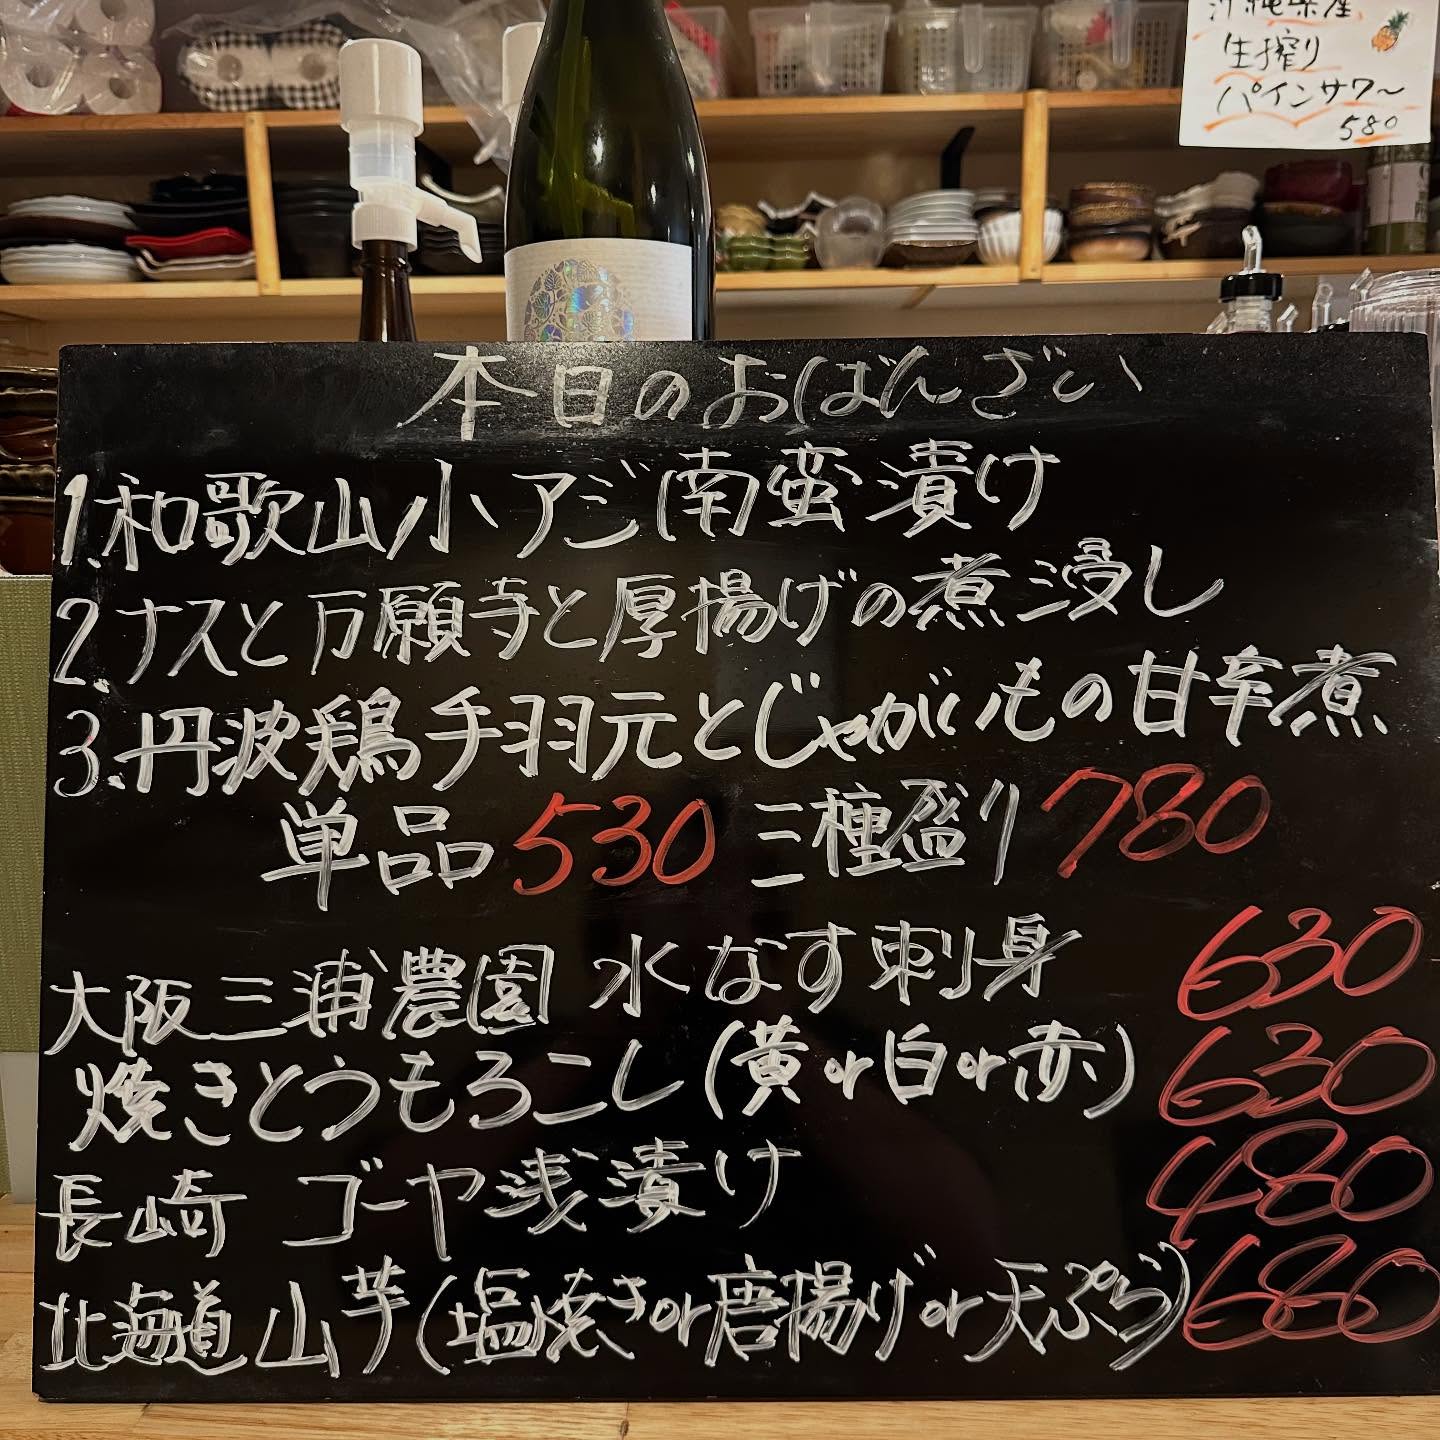 沖縄県産
生搾り
パインサワー
580
本日のおばんざい
1.和歌山小アジ南蛮漬け
2.ナスと万願寺と厚揚げの煮浸し
3.丹波鶏手羽元とじゃがいもの甘辛煮
単品530 三種盛り780
大阪三浦農園 水なす刺身 630
焼きとうもろこし(黄or白or赤) 630
長崎 ゴーヤ浅漬け 480
北海道山芋(塩焼きor唐揚げor天ぷら) 680